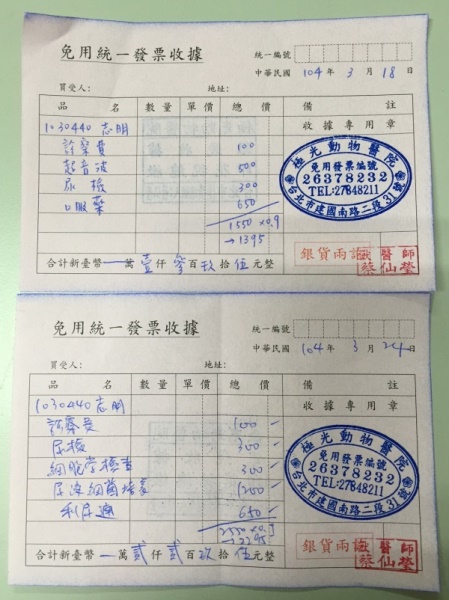 免用統一發票收據
統一編號
中華民國 104 年 3 月 18 日
買受人： 地址：
品名 數量 單價 總價 備註
1030440 志明 收據專用章
診察費 100
超音波 500
尿檢 300
口服藥 650
1550 x0.9
→1395
極光動物醫院
免用發票編號
26378232
TEL:27848211
台北市建國南路二段31號
銀貨兩訖
獸醫師
蔡仙瑩
合計新臺幣 一 萬 壹 仟 參 百 玖 拾 伍 元整
免用統一發票收據
統一編號
中華民國 104 年 3 月 24 日
買受人： 地址：
品名 數量 單價 總價 備註
1030440 志明 收據專用章
診察費 100
尿檢 300
細胞學檢查 300
尿液細菌培養 1200
利尿通 650
2550 x0.9
→2295
極光動物醫院
免用發票編號
26378232
TEL:27848211
台北市建國南路二段31號
銀貨兩訖
獸醫師
蔡仙瑩
合計新臺幣 一 萬 貳 仟 貳 百 玖 拾 伍 元整